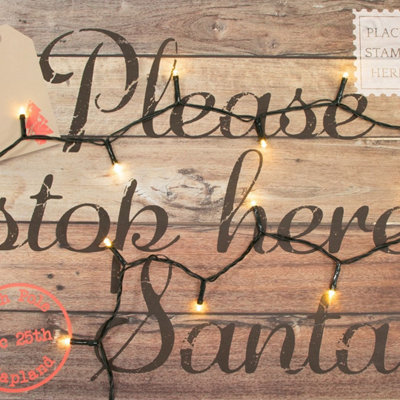 PLAC
STAM
HER
Please
stop here
Santa
25th
apland